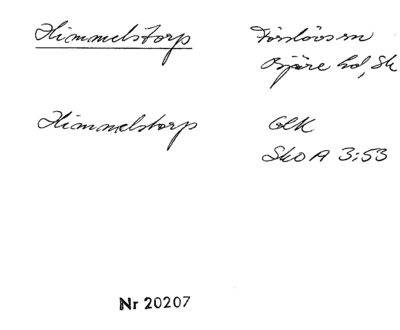 Himmelstorp Förslövs sn
Bjäre hd, Sk
Himmelstorp GEK
SkO A 3:53
Nr 20207